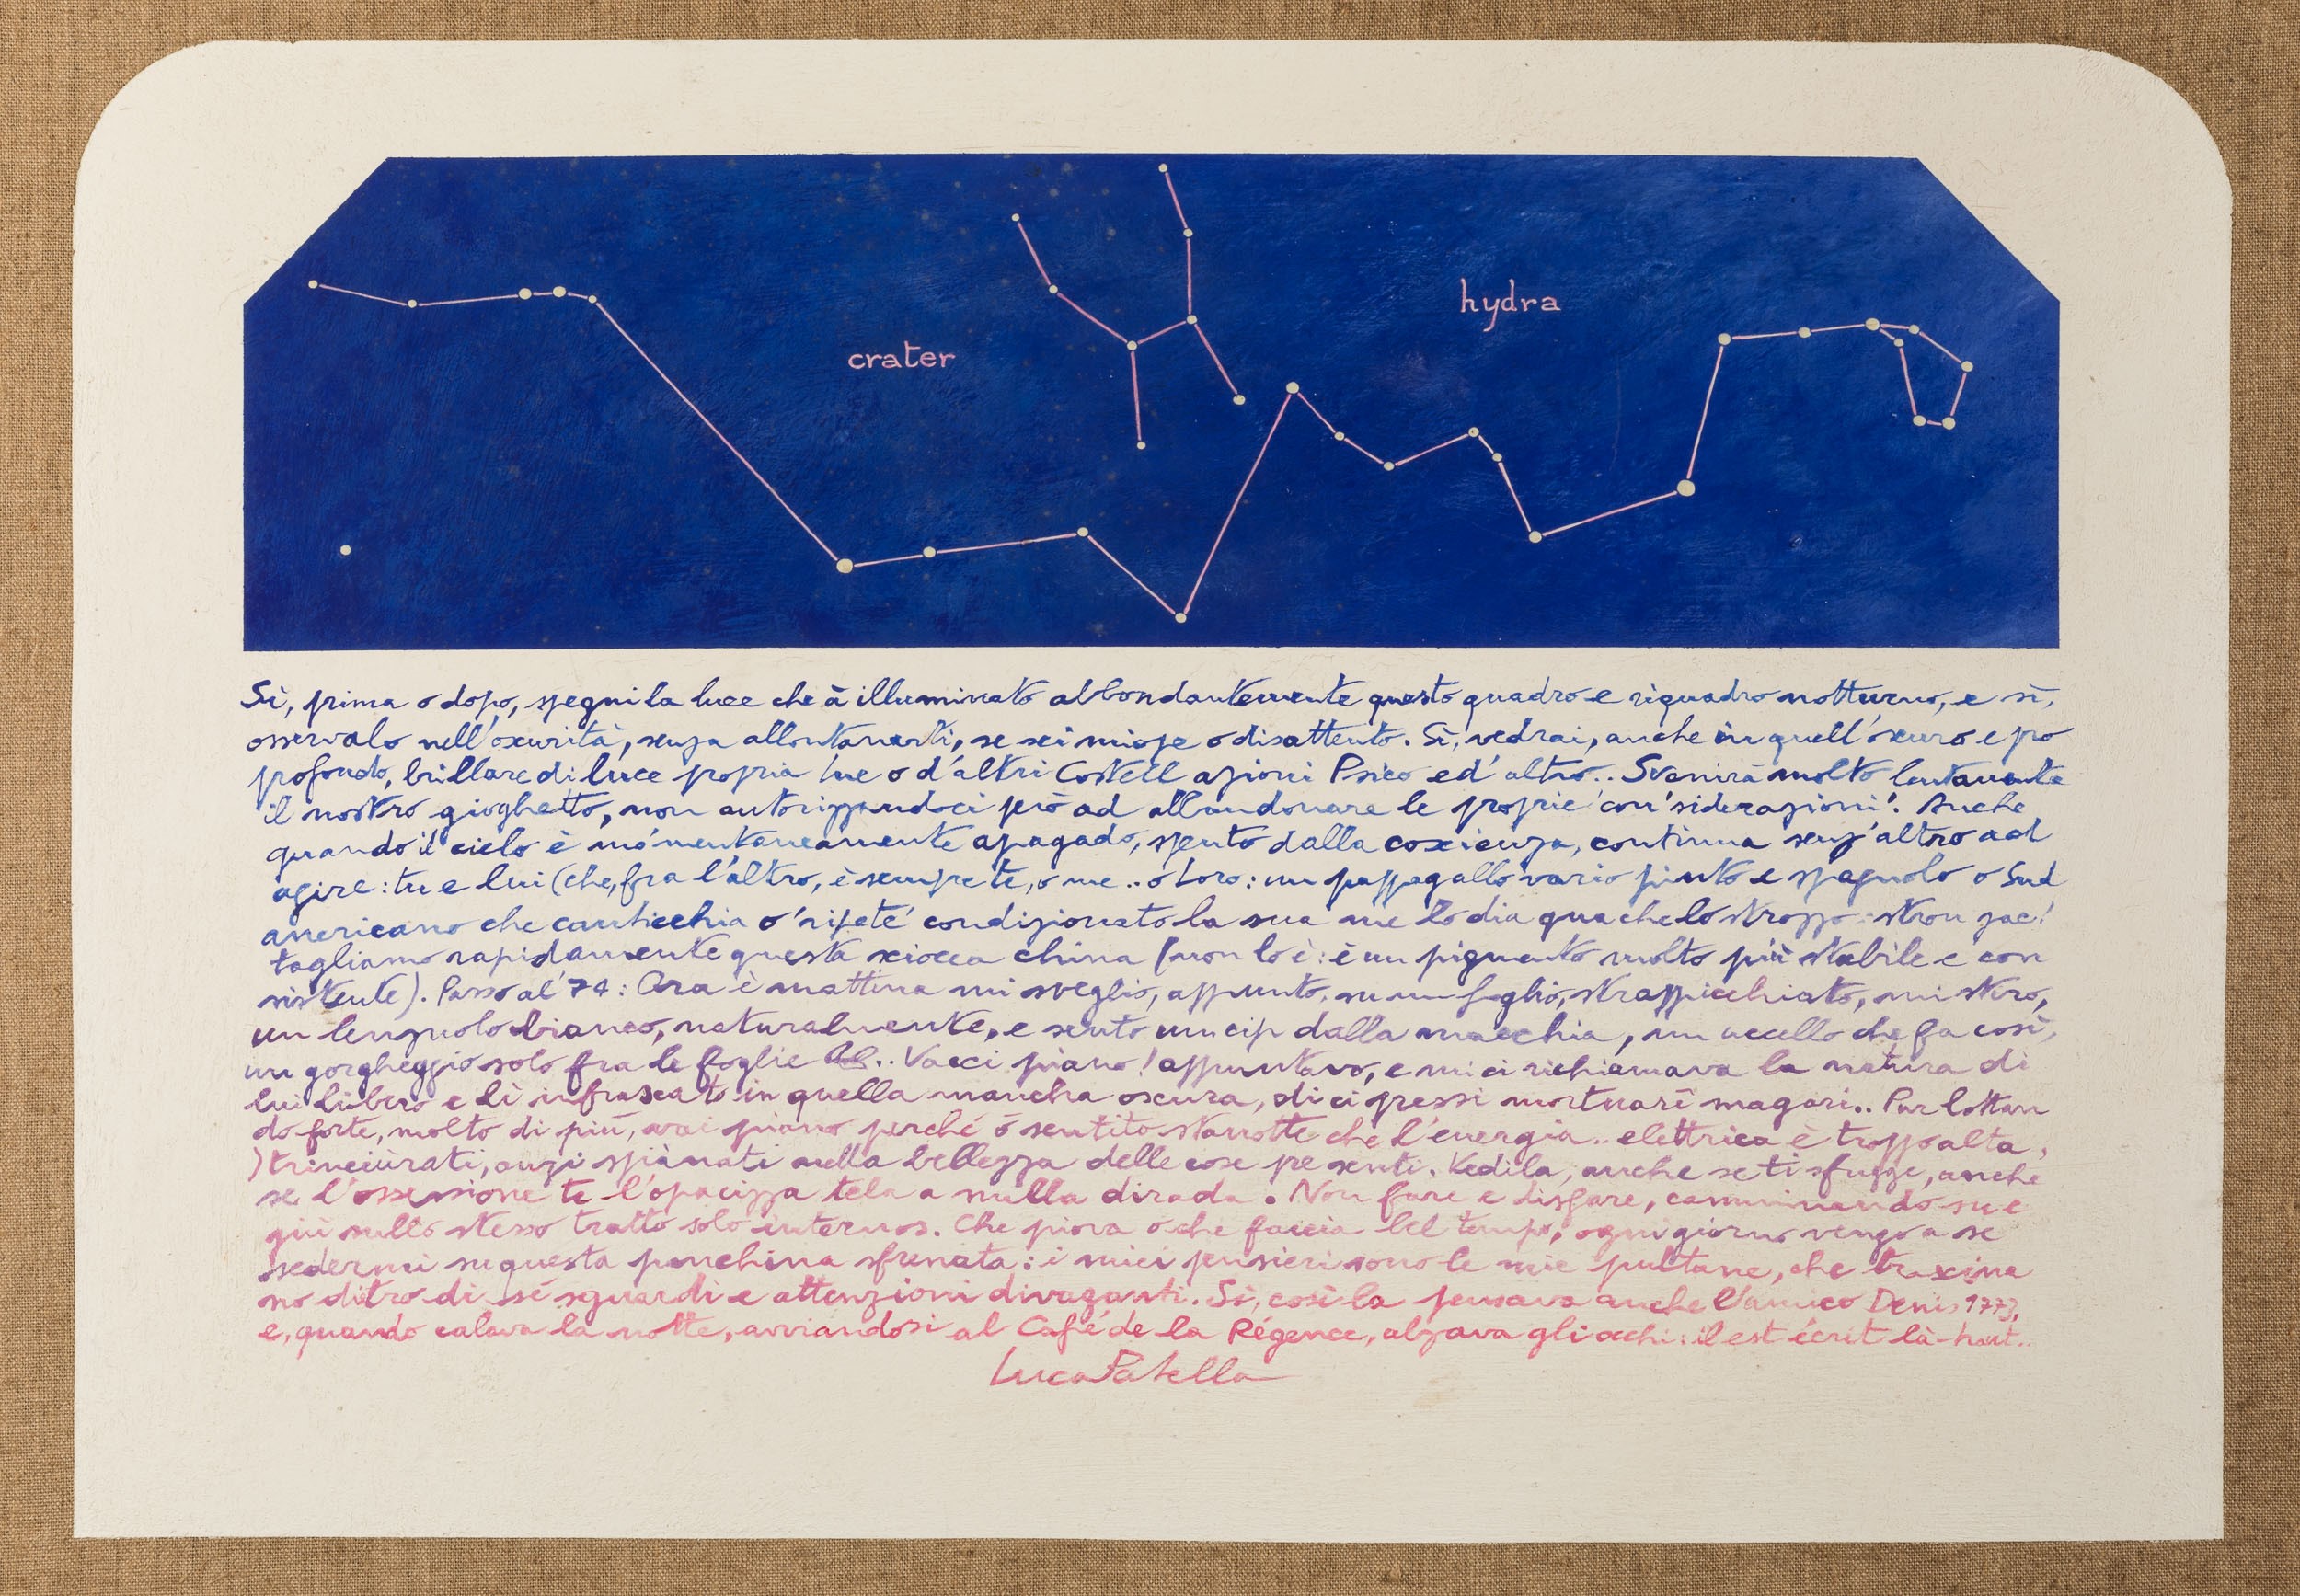 hydra
crater
Sì, prima o dopo, spegni la luce che à illuminato abbondantemente questo quadro e riquadro notturno, e sì,
osservalo nell'oscurità, senza allontanarti, se sei miope o disattento. Sì, vedrai, anche in quell'oscuro e pro
profondo, brillare di luce propria tue o d'altri Costell azioni Psico ed' altro.. Svanirà molto lentamente
il nostro gioghetto, non autorizzandoci però ad abbandonare le proprie 'con'siderazioni'. Anche
quando il cielo è mo'mentaneamente apagado, spento dalla coscienza, continua senz'altro ad
agire: tu e lui (che, fra l'altro, è sempre te, o me .. o Loro: un pappagallo vario pinto e spagnolo o Sud
americano che canticchia o 'ripete' condizionato la sua me lo dia qua che lo strozzo: stron zac!
tagliamo rapidamente questa sciocca china (non lo è: è un pigmento molto più stabile e con
sistente). Passo al '74: Ora è mattina mi sveglio, appunto, su un foglio, strappicchiato, mi stiro,
un lenzuolo bianco, naturalmente, e sento un cip dalla macchia, un uccello che fa così,
un gorgheggio solo fra le foglie .. Vacci piano! appuntavo, e mi ci richiamava la natura di
lui libero e lì infrascato in quella mancha oscura, di ci pressi mortuari magari.. Pur lottan
do forte, molto di più, vai piano perché ò sentito stanotte che l'energia.. elettrica è troppo alta,
) trinciùrati, anzi spiànati nella bellezza delle cose pe senti. Vedila, anche se ti sfugge, anche
se l'ossessione te l'opacizza tela a nulla dirada. Non fare e disfare, camminando su e
giù sullo stesso tratto solo internos. Che piova o che faccia bel tempo, ogni giorno vengo a se
sedermi su questa panchina sfrenata: i miei pensieri sono le mie puttane, che trascina
no dietro di sé sguardi e attenzioni divaganti. Sì, così la pensava anche l'amico Denis 1773,
e, quando calava la notte, avviandosi al Café de la Régence, alzava gli occhi: il est écrit là-haut..
Luca Patella